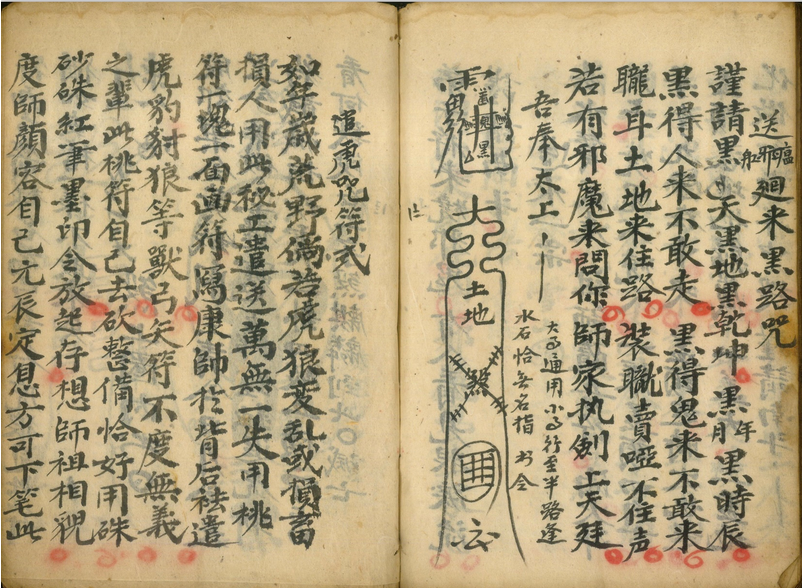 送瘟邪船廻来黑路咒
謹請黑天黑地黑乾坤黑年月黑時辰
黑得人来不敢走黑得鬼来不敢来
聽耳土地来住路裝聾賣啞不住声
若有邪魔来問你師家执劍上天廷
吾奉太上
大与通用小与行至半路逢
水石恰無名指書令
黑
大
土地
煞
遣虎咒符式
如年歲荒野倘若虎狼变乱或損畜
損人用此秘工遣送萬無一失用桃
符一塊一面画符寫康師於背后祛遣
虎豹豺狼等獸弓矢符不度無義
之輩此桃符自己去砍整備恰好用硃
砂硃紅筆墨印令放起存想師祖相親
度師顔容自己元辰定息方可下筆此